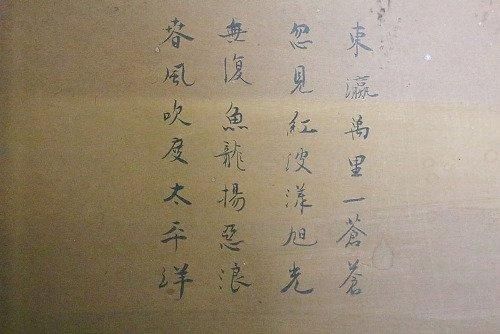 東瀛萬里一蒼蒼
忽見紅波漾旭光
無復魚龍揚惡浪
春風吹度太平洋